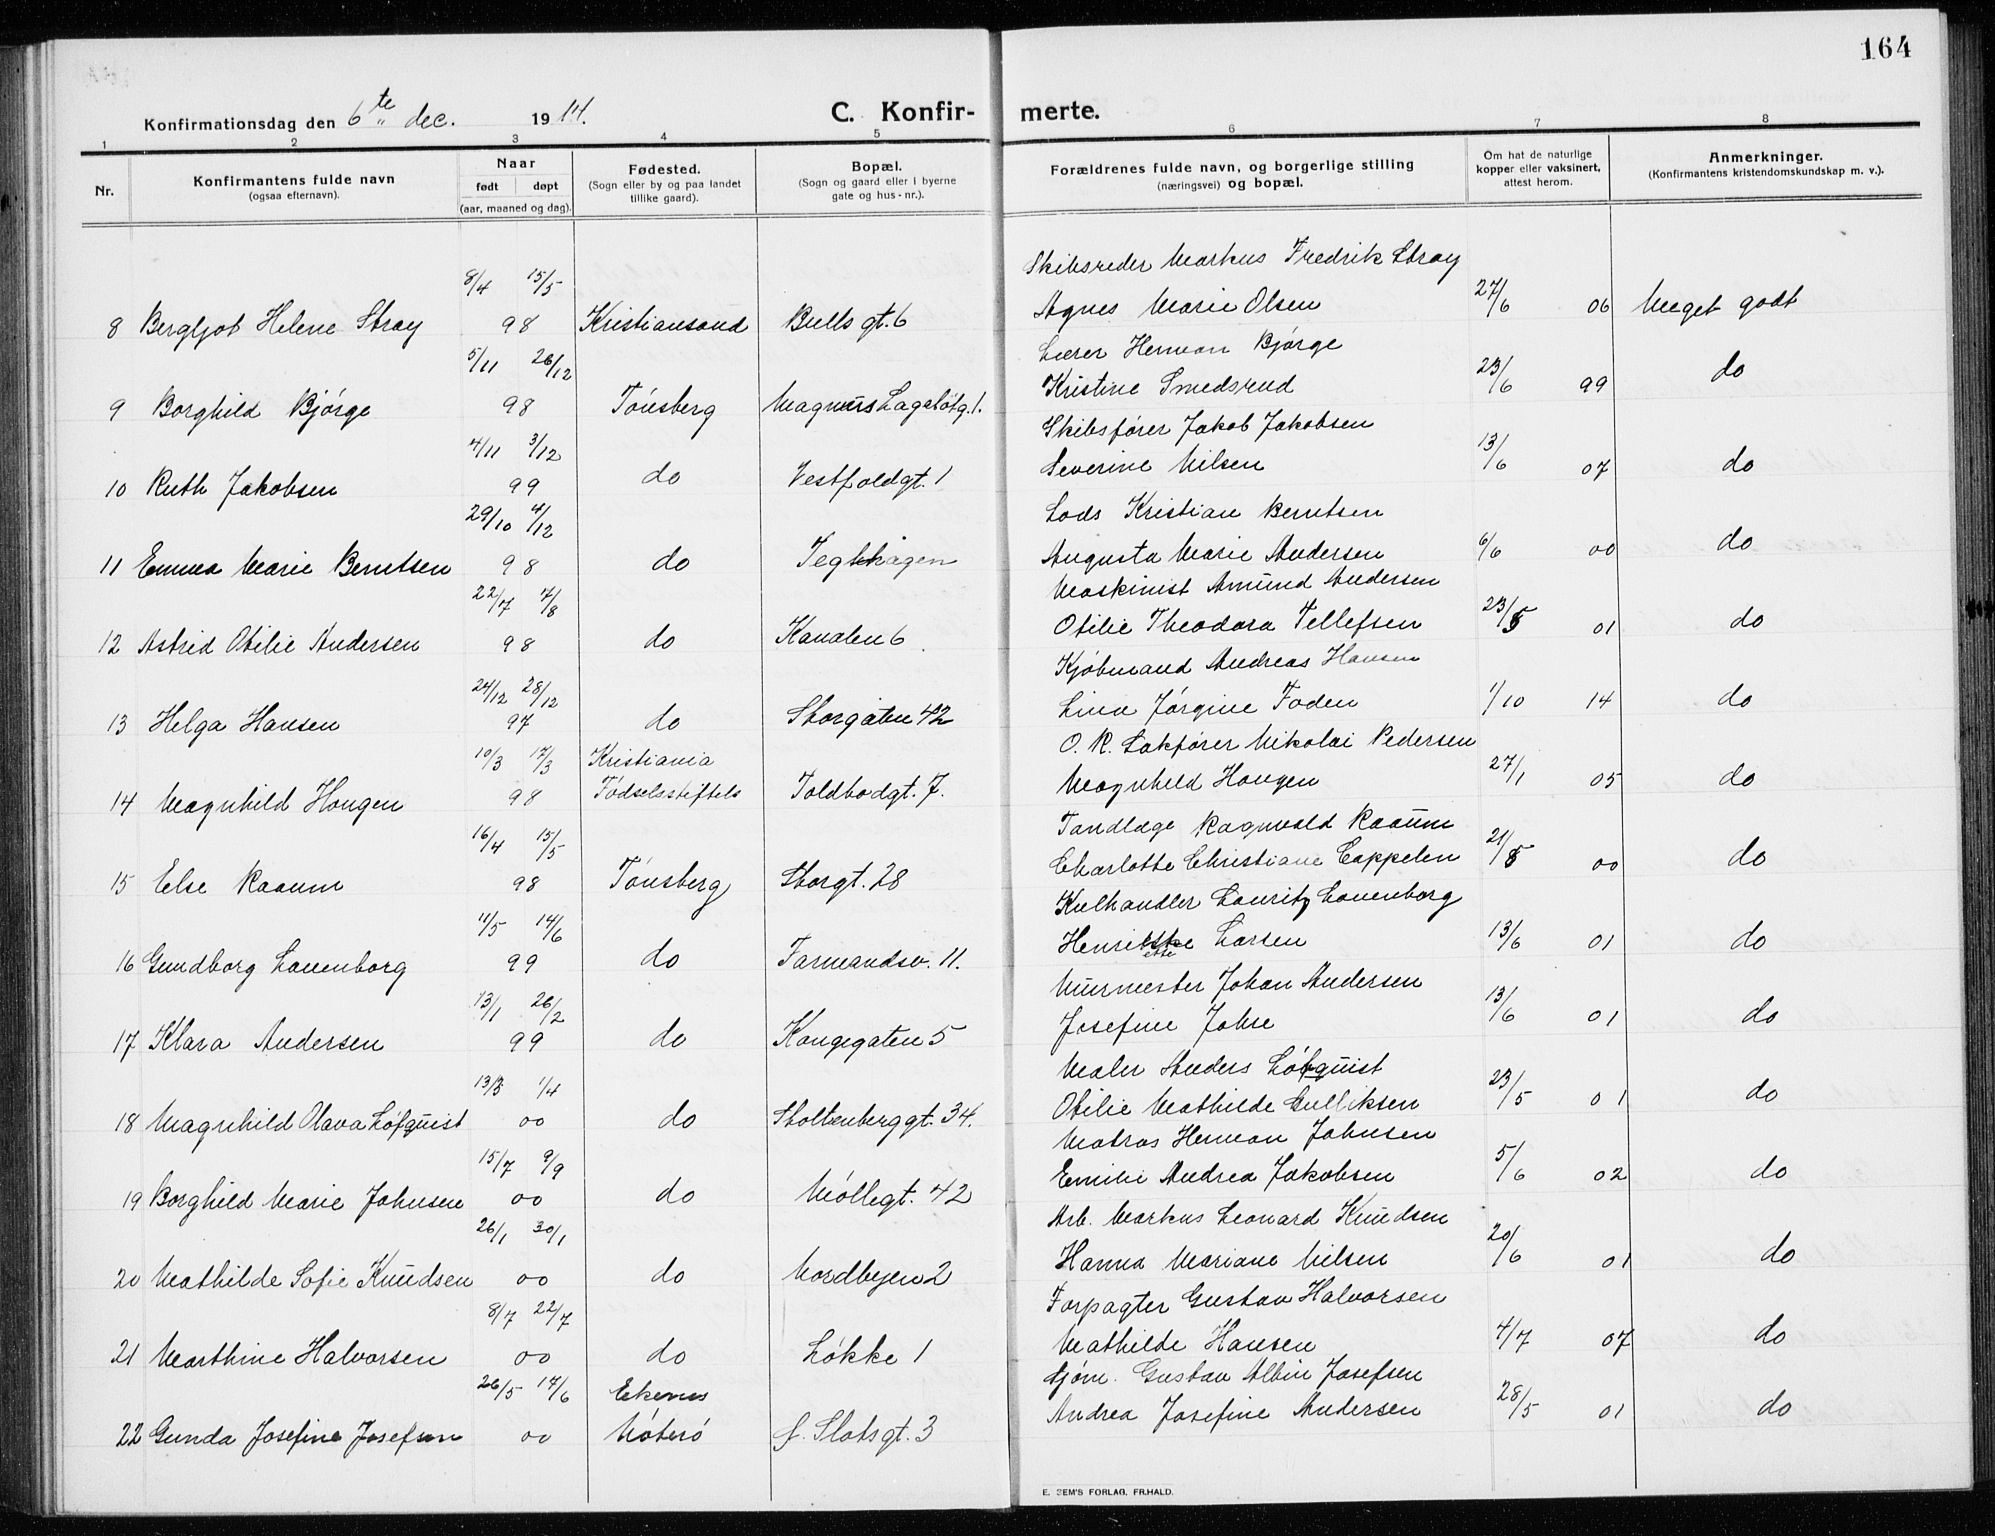 164
Konfirmationsdag den 6te dec. 1914. C. Konfirmerte.
1 2 3 4 5 6 7 8
Nr. Konfirmantens fulde navn (ogsaa efternavn). Naar født døpt (aar, maaned og dag). Fødested. (Sogn eller by og paa landet tillike gaard). Bopæl. (Sogn og gaard eller i byerne gate og hus-nr.). Forældrenes fulde navn, og borgerlige stilling (næringsvei) og bopæl. Om hat de naturlige kopper eller vaksinert, attest herom. Anmerkninger. (Konfirmantens kristendomskundskap m. v.).
8/4 15/5 Skibsreder Markus Fredrik Stray
8 Bergljot Helene Stray 98 Kristiansand Bulls gt. 6 Agnes Marie Olsen 27/6 06 Meget godt
5/11 26/12 Lærer Herman Bjørge
9 Borghild Bjørge 98 Tønsberg Magnus Lagabøtg. 1. Kristine Smedsrud 23/6 99 do
4/11 3/12 Skibsfører Jakob Jakobsen
10 Ruth Jakobsen 99 do Vestfoldgt. 1 Severine Nilsen 13/6 07 do
29/10 4/12 Lods Kristian Berntsen
11 Emma Marie Berntsen 98 do Teglhagen Augusta Marie Andersen 6/6 00 do
22/7 7/8 Maskinist Amund Andersen
12 Astrid Otilie Andersen 98 do Kanalen 6 Otilie Theodora Tellefsen 23/5 01 do
24/12 28/12 Kjøbmand Andreas Hansen
13 Helga Hansen 97 do Storgaten 42 Lina Jørgine Foden 1/10 14 do
10/3 17/3 Kristiania O. R. Sakfører Nikolai Pedersen
14 Magnhild Hougen 98 Fødselsstiftels Toldbodgt. 7. Magnhild Hougen 27/1 05 do
16/4 15/5 Tandlæge Ragnvald Raaum
15 Else Raaum 98 Tønsberg Storgt. 28 Charlotte Christiane Cappelen 21/5 00 do
11/5 14/6 Kulhandler Lauritz Lauenborg
16 Gundborg Lauenborg 99 do Farmandsv. 11. Henriette Larsen 13/6 01 do
13/1 26/2 Murmester Johan Andersen
17 Klara Andersen 99 do Kongegaten 5 Josefine Johse 13/6 01 do
13/3 1/4 Maler Anders Løfquist
18 Magnhild Olava Løfquist 00 do Stoltenberggt. 34. Otilie Mathilde Gulliksen 23/5 01 do
15/7 9/9 Matros Herman Johnsen
19 Borghild Marie Johnsen 00 do Møllegt. 42 Emilie Andrea Jakobsen 5/6 02 do
26/1 30/1 Arb. Markus Leonard Knudsen
20 Mathilde Sofie Knudsen 00 do Nordbyen 2 Hanna Mariane Nilsen 20/6 01 do
8/7 22/7 Forpagter Gustav Halvorsen
21 Marthine Halvorsen 00 do Løkke 1 Mathilde Hansen 4/7 07 do
26/5 17/6 Ekenes Sjøm. Gustav Albin Josefsen
22 Gunda Josefine Josefsen 00 Nøterø f. Slotsgt. 3 Andrea Josefine Andersen 28/5 01 do
E. SEM'S FORLAG, FR.HALD.